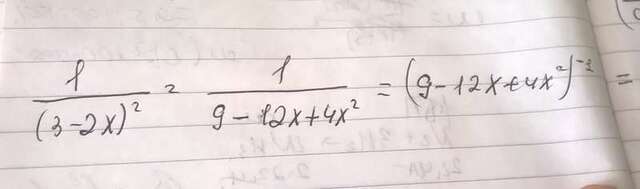 1/(3-2x)² = 1/(9-12x+4x²) = (9-12x+4x²)⁻¹ =